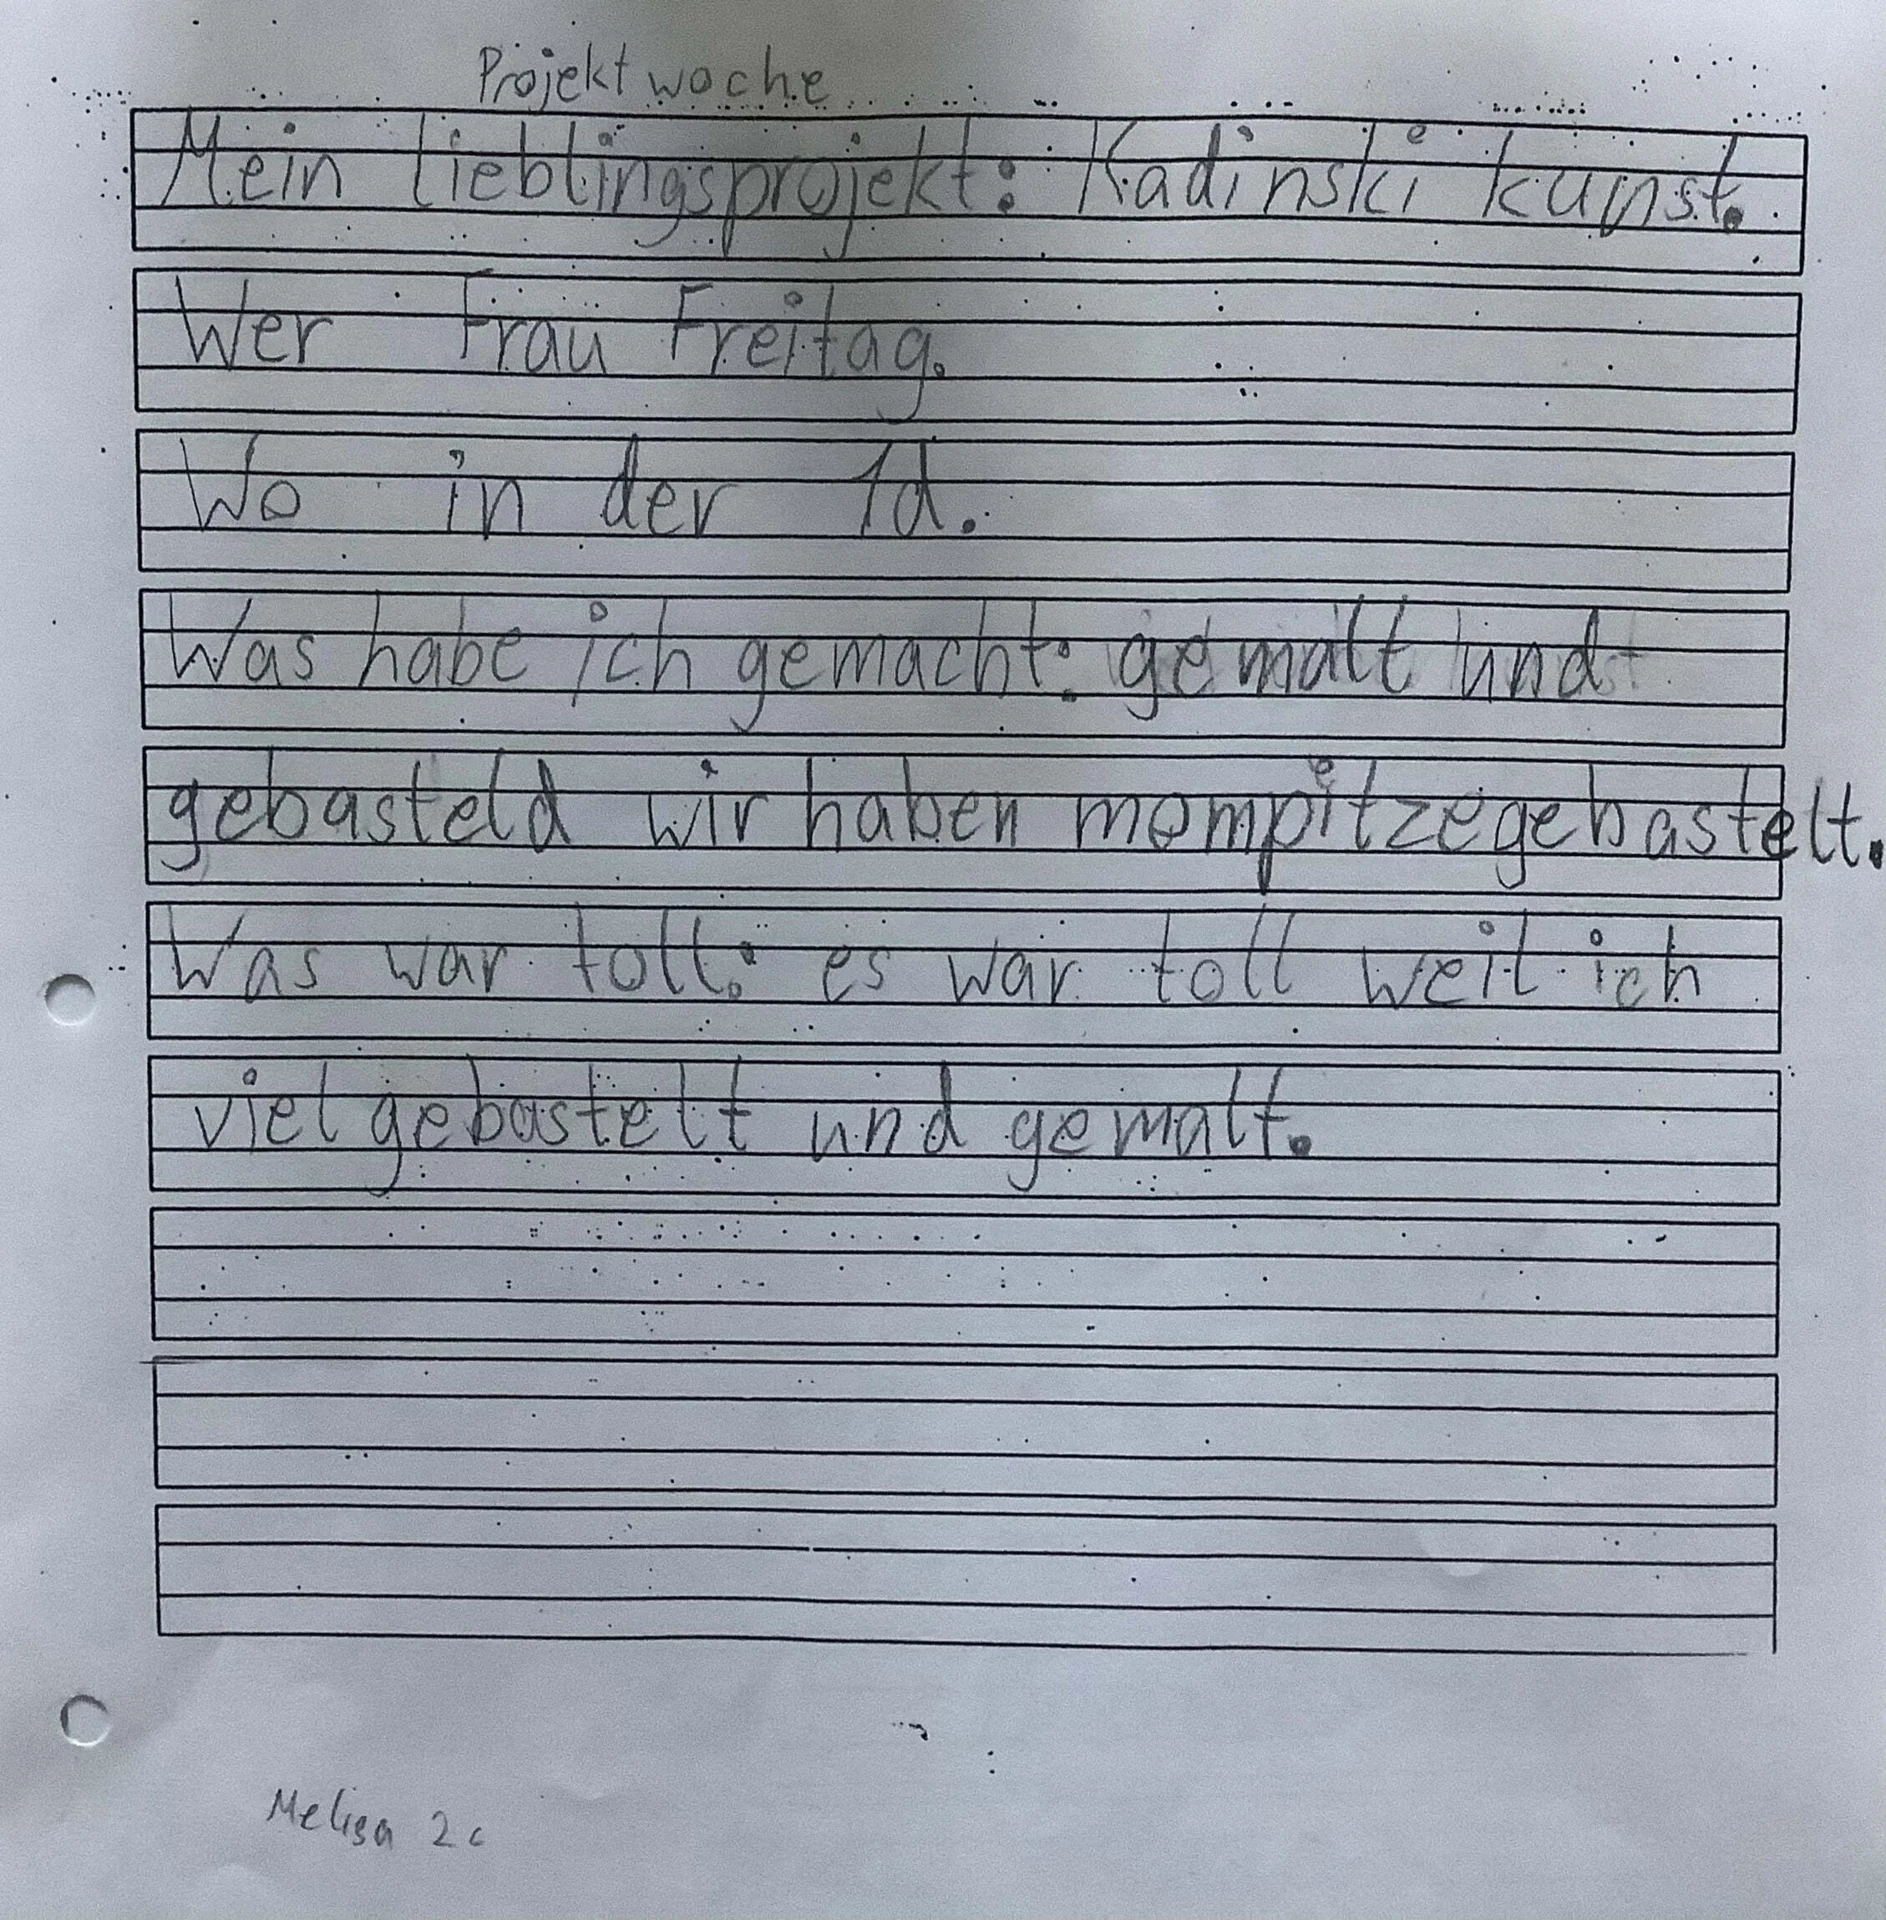 Projektwoche
Mein Lieblingsprojekt: Kadinski kunst.
Wer Frau Freitag.
Wo in der 1d.
Was habe ich gemacht: gemalt und
gebasteld wir haben mompitze gebastelt.
Was war toll: es war toll weil ich
viel gebastelt und gemalt.
Melisa 2c